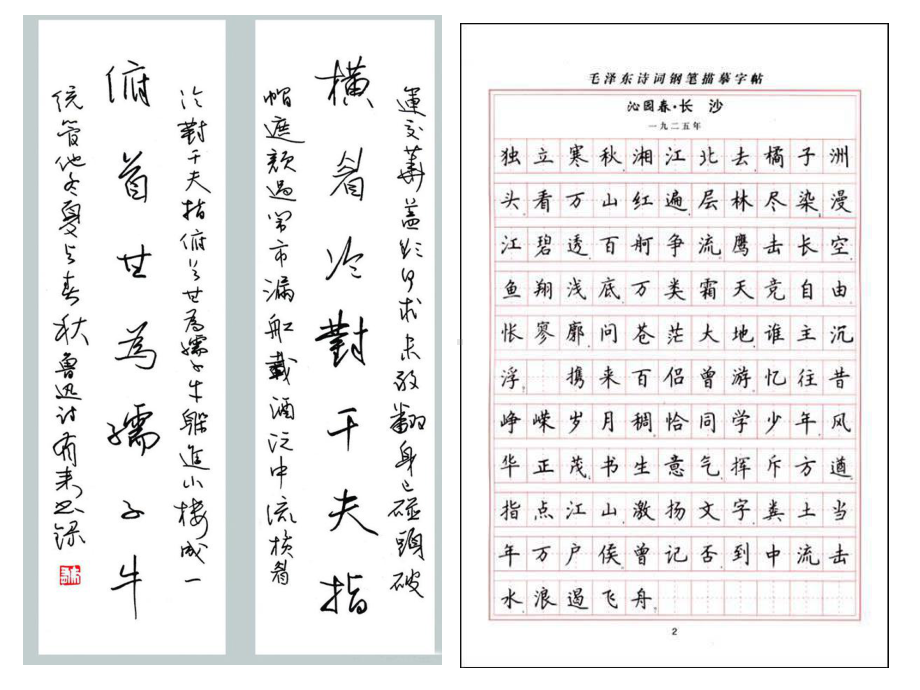 運交華蓋欲何求未敢翻身已碰頭破
横眉冷對千夫指
帽遮顏過闹市漏船載酒泛中流横眉
冷對千夫指俯首甘為孺子牛躲進小樓成一
俯首甘為孺子牛
统管他冬夏与春秋魯迅诗
毛泽东诗词钢笔描摹字帖
沁园春·长 沙
一九二五年
独立寒秋湘江北去橘子洲
头看万山红遍层林尽染漫
江碧透百舸争流鹰击长空
鱼翔浅底万类霜天竞自由
怅寥廓问苍茫大地谁主沉
浮 携来百侣曾游忆往昔
峥嵘岁月稠恰同学少年风
华正茂书生意气挥斥方遒
指点江山激扬文字粪土当
年万户侯曾记否到中流击
水浪遏飞舟
2